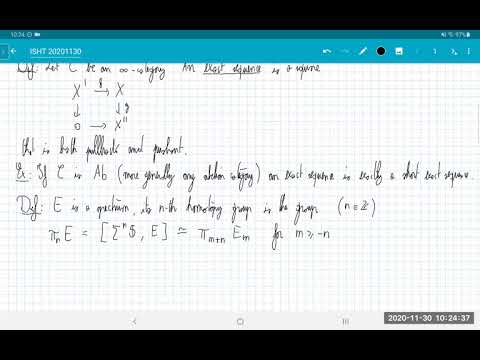 10:24
97%
ISHT 20201130
Def: Let C be an ∞-category An exact sequence is a square
X' →f X
↓ ↓g
0 → X''
that is both pullback and pushout.
Ex: If C is Ab (more generally any abelian category) an exact sequence is exactly a short exact sequence.
Def: E is a spectrum, its n-th homotopy group is the group (n∈ℤ)
π_n E = [Σ^n 𝕊, E] ≃ π_{m+n} E_m for m ≥ -n
2020-11-30 10:24:37